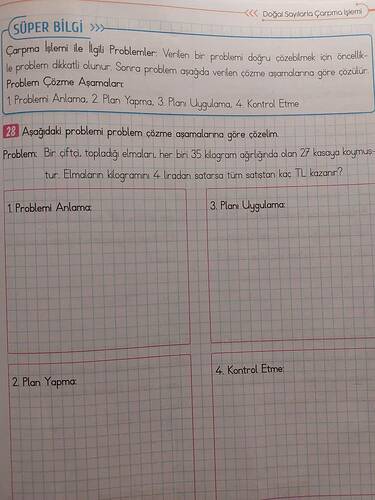 <<< Doğal Sayılarla Çarpma İşlemi
SÜPER BİLGİ >>>
Çarpma İşlemi ile İlgili Problemler: Verilen bir problemi doğru çözebilmek için öncelik-
le problem dikkatli okunur. Sonra problem aşağıda verilen çözme aşamalarına göre çözülür.
Problem Çözme Aşamaları:
1. Problemi Anlama, 2. Plan Yapma, 3. Planı Uygulama, 4. Kontrol Etme
28 Aşağıdaki problemi problem çözme aşamalarına göre çözelim.
Problem: Bir çiftçi, topladığı elmaları, her biri 35 kilogram ağırlığında olan 27 kasaya koymuş-
tur. Elmaların kilogramını 4 liradan satarsa tüm satıştan kaç TL kazanır?
1. Problemi Anlama:
3. Planı Uygulama:
2. Plan Yapma:
4. Kontrol Etme: